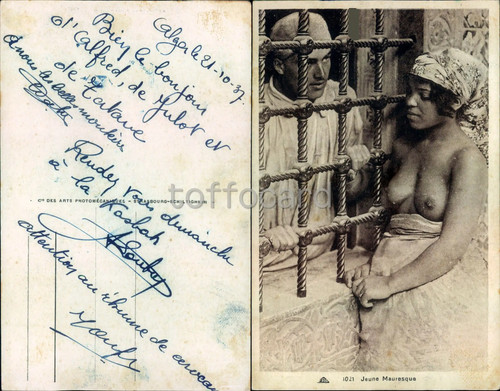 Alger le 21.10.37
Bien le bonjour
d'Alfred, de Julot et
de Tatave
à nous les belles moukère
Rendez vous dimanche
à la Kasbah
attention au rhume de cerveau
Cie DES ARTS PHOTOMÉCANIQUES - STRASBOURG-SCHILTIGHEIM
toffocard
1021 Jeune Mauresque